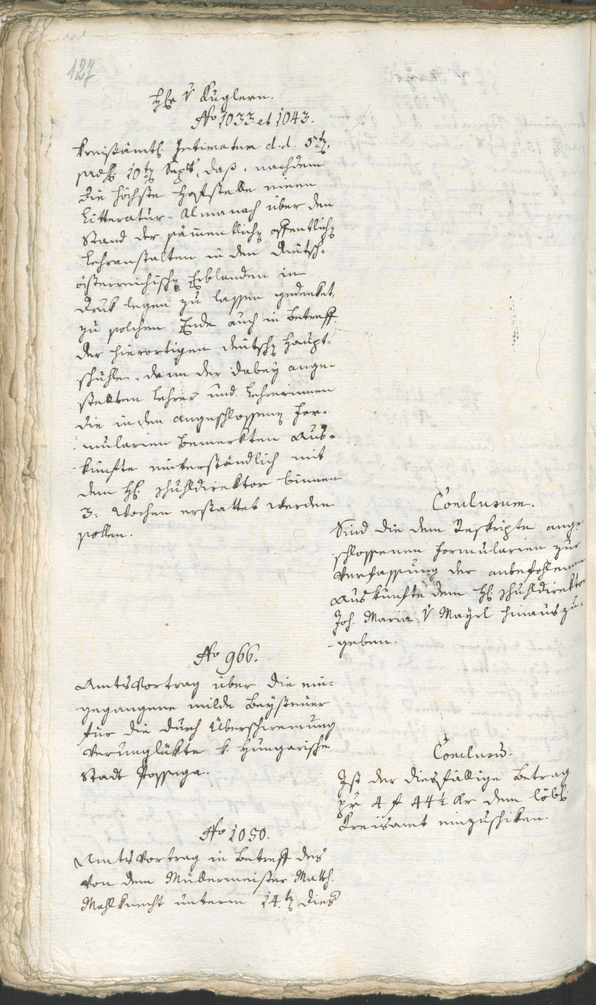 127
H: v Kuglern.
No 1033 et 1043.
Kreisämtl. Intimatum d.d. 5ten
praes. 10ten Sept., daß, nachdem
die höchste Hofstelle einen
Litteratur-Almanach über den
Stand der sämmentlichen öffentlichen
Lehranstalten in den deutsch-
österreichischen Erblanden in
Druk legen zu lassen gedenket,
zu solchem Ende auch in Betreff
der hierortigen deutschen Haupt-
schuhlen, dann der dabey ange-
stellten Lehrer und Lehrerinnen
die in den angeschlossenen For-
mularien bemerkten Aus-
künfte einverständlich mit
dem H: Schuhldirektor binnen
3: Wochen erstattet werden
sollen.
Conclusum.
Sind die dem Reskripte ange-
schlossenen Formularien zur
Verfassung der anbefohlenen
Auskünfte dem H: Schuhldirektor
Joh. Maria v Mayrl hinauszu-
geben.
No 966.
Amtsvortrag über die ein-
gegangene milde Beysteuer
für die durch Überschwemung
verunglükte k. hungarische
Stadt Possega.
Conclusum.
Ist der diesfällige Betrag
pr 4 f 44½ kr dem löbl.
Kreisamt einzuschiken.
No 1050.
Amtsvortrag in Betreff des
von dem Müllermeister Math.
Mahlknecht unterm 14ten dies